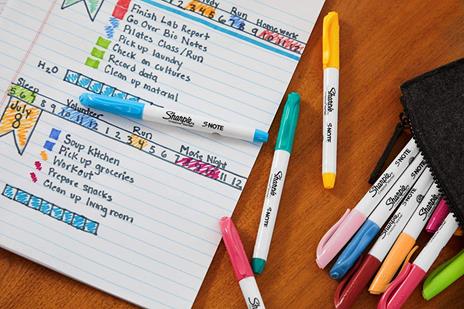 Study Run Homework
Finish Lab Report
Go Over Bio Notes
Pilates Class/Run
Pick up laundry
Check on cultures
Record data
Clean up material
H₂O
Sleep Volunteer Run Movie Night
5 6 7 8 9 10 11 12 1 2 3 4 5 6 7 8 9 10 11 12
July
8
Soup Kitchen
Pick up groceries
Workout
Prepare snacks
Clean up living room
Sharpie S·NOTE
Sharpie S·NOTE
Sharpie S·NOTE
Sharpie
Sharpie S·NOTE
Sharpie
Sharpie
Sharpie